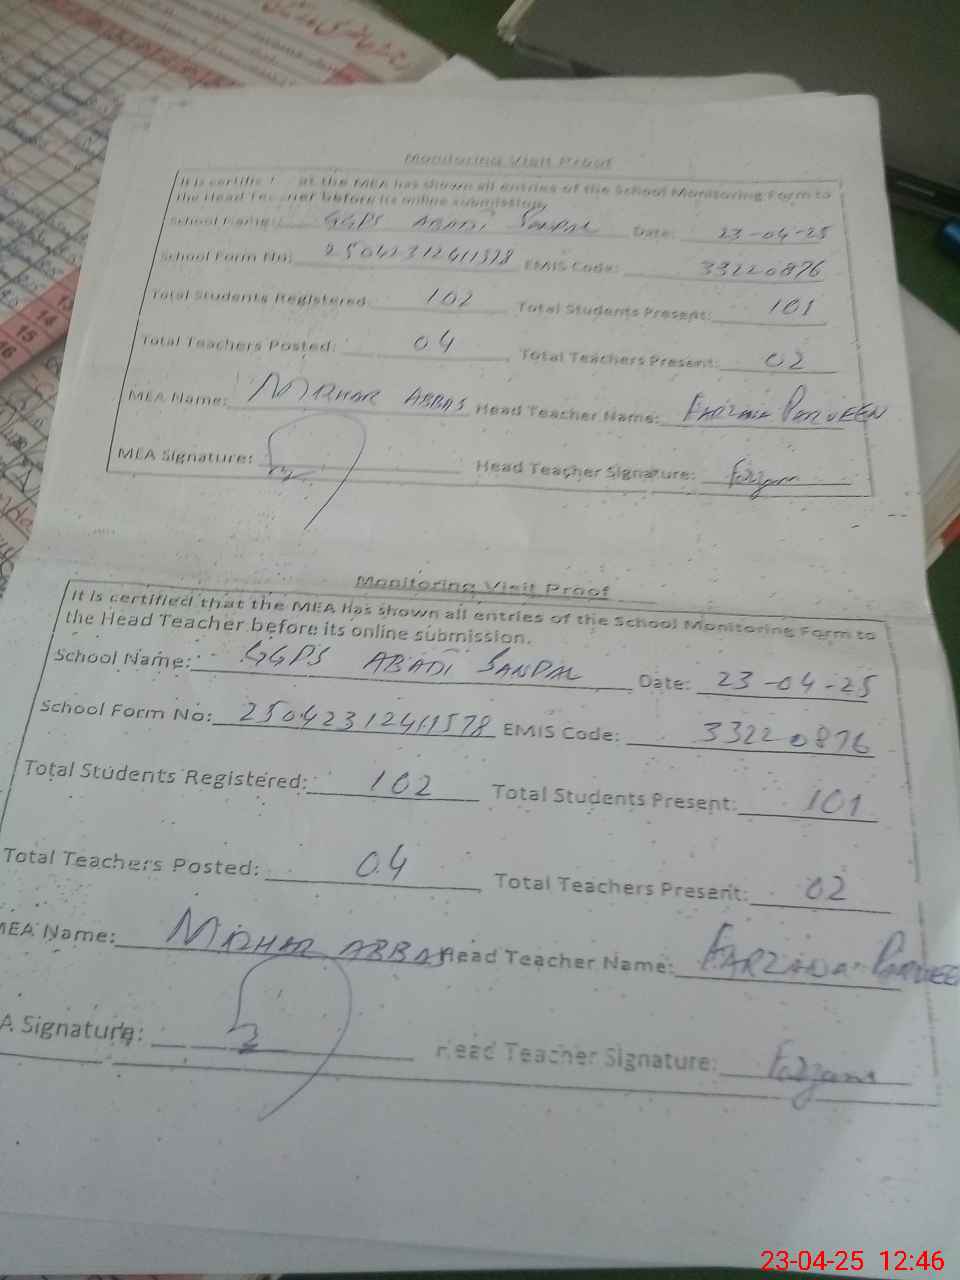 Monitoring Visit Proof
It is certifie at the MEA has shown all entries of the School Monitoring Form to
the Head Teacher before its online submission.
School Name: GGPS ABADI SANPAL Date: 23-04-25
School Form No: 25042312411578 EMIS Code: 33220876
Total Students Registered: 102 Total Students Present: 101
Total Teachers Posted: 04 Total Teachers Present: 02
MEA Name: ABBAS Head Teacher Name: FARZANA PARVEEN
MEA Signature: Head Teacher Signature:
Monitoring Visit Proof
It is certified that the MEA has shown all entries of the School Monitoring Form to
the Head Teacher before its online submission.
School Name: GGPS ABADI SANPAL Date: 23-04-25
School Form No: 25042312411578 EMIS Code: 33220876
Total Students Registered: 102 Total Students Present: 101
Total Teachers Posted: 04 Total Teachers Present: 02
MEA Name: ABBAS Head Teacher Name: FARZANA PARVEEN
A Signature: Head Teacher Signature:
13
14
15
16
23-04-25 12:46